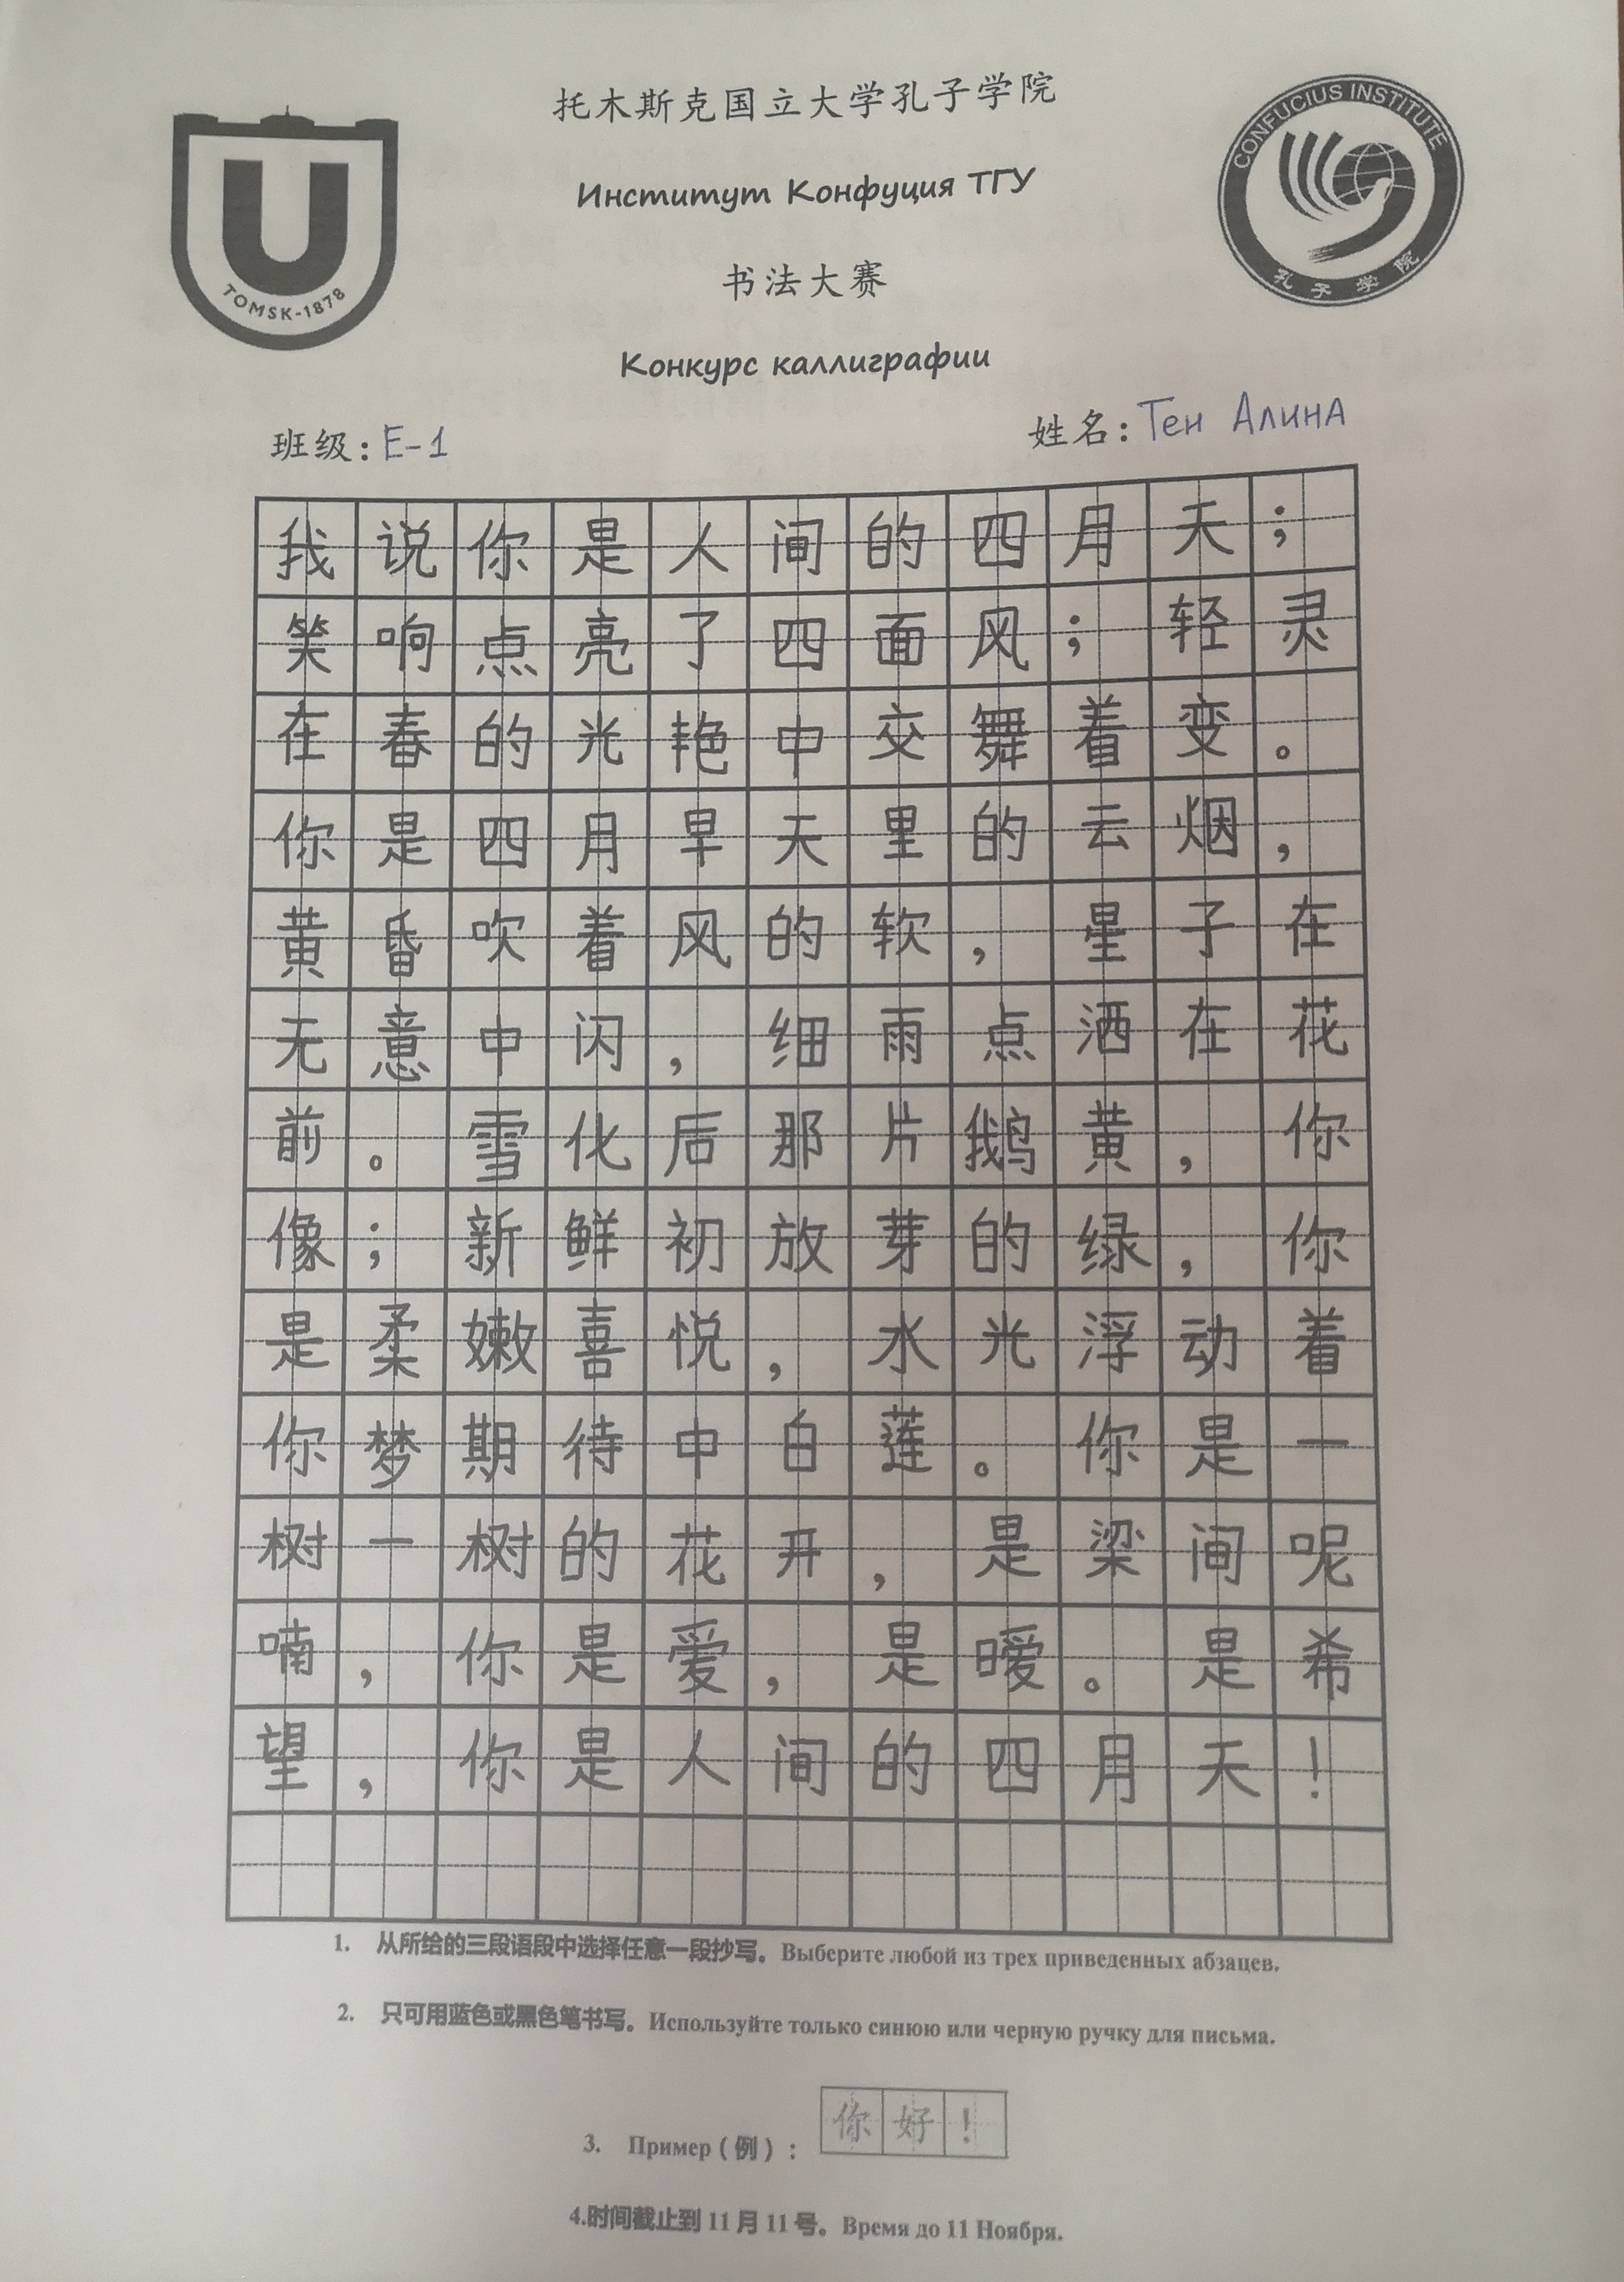 托木斯克国立大学孔子学院
Институт Конфуция ТГУ
书法大赛
Конкурс каллиграфии
U
TOMSK-1878
CONFUCIUS INSTITUTE
孔子学院
班级：E-1
姓名：Тен Алина
我说你是人间的四月天；
笑响点亮了四面风；轻灵
在春的光艳中交舞着变。
你是四月早天里的云烟，
黄昏吹着风的软，星子在
无意中闪，细雨点洒在花
前。雪化后那片鹅黄，你
像；新鲜初放芽的绿，你
是柔嫩喜悦，水光浮动着
你梦期待中白莲。你是一
树一树的花开，是梁间呢
喃，你是爱，是暖。是希
望，你是人间的四月天！
1. 从所给的三段语段中选择任意一段抄写。Выберите любой из трех приведенных абзацев.
2. 只可用蓝色或黑色笔书写。Используйте только синюю или черную ручку для письма.
3. Пример（例）：你好！
4.时间截止到 11 月 11 号。Время до 11 Ноября.